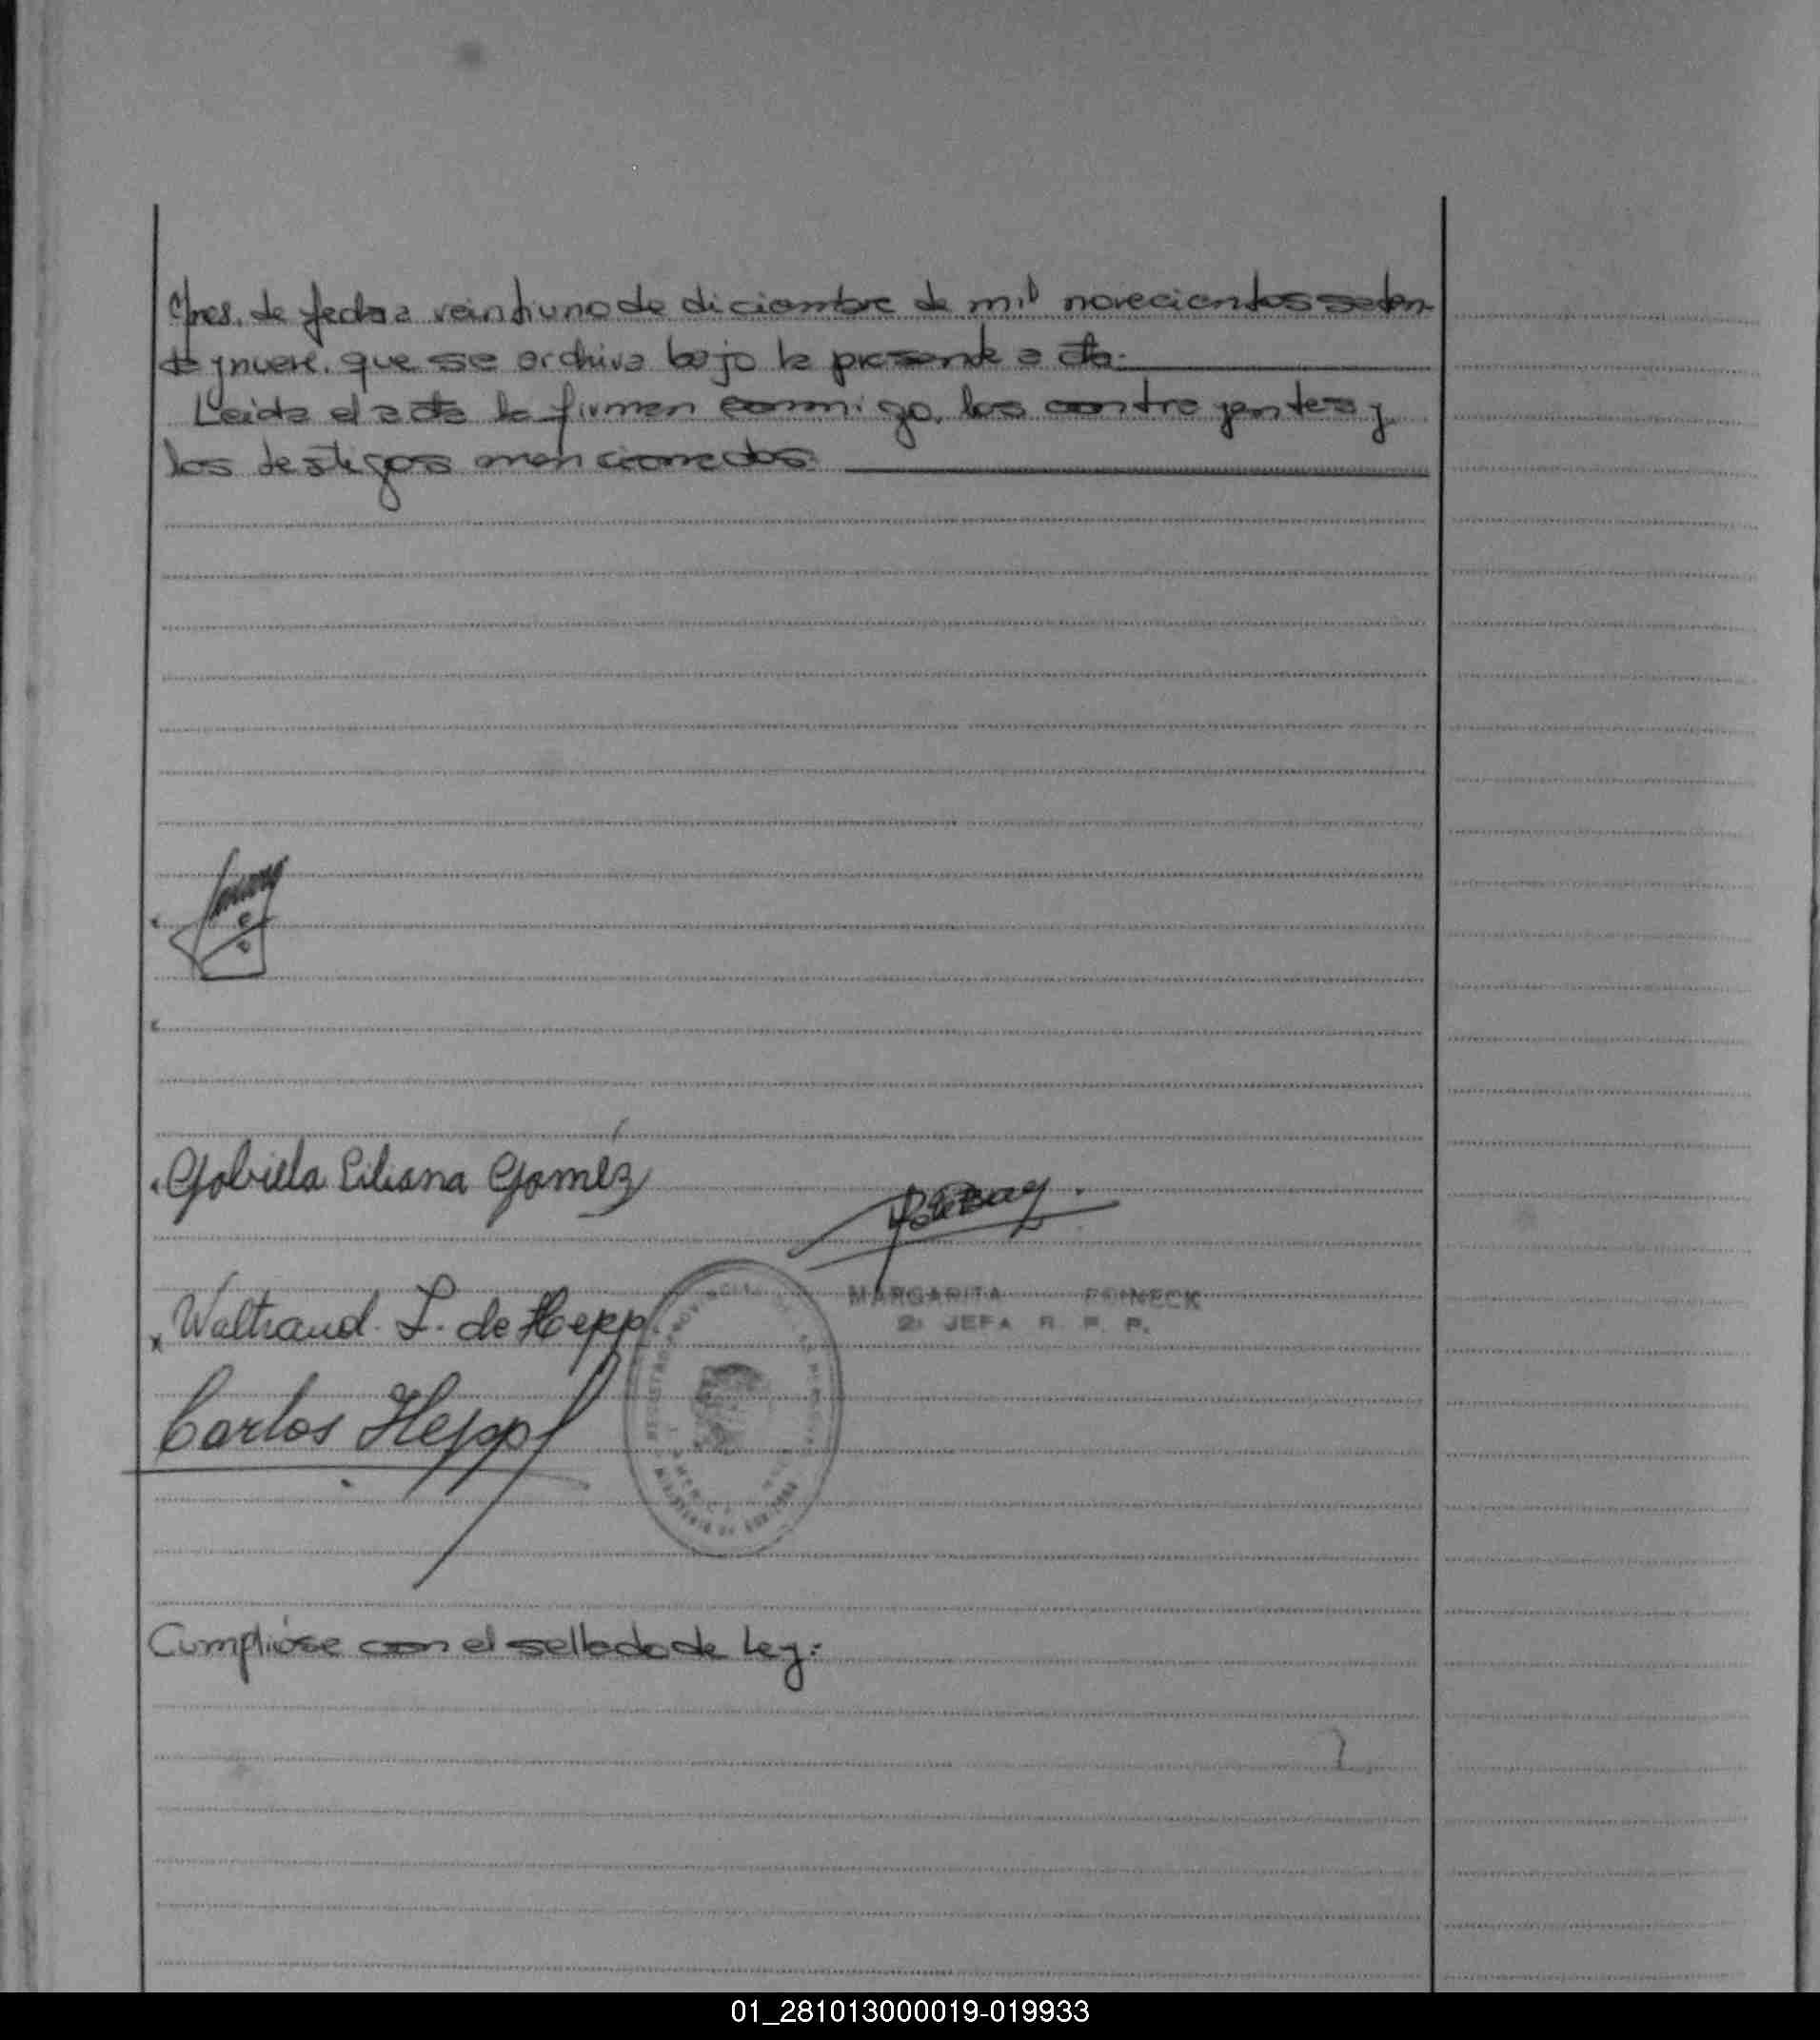 tres. de fecha veintiuno de diciembre de mil novecientos seten-
ta y nueve. que se archiva bajo la presente acta.
Leida el acta la firman conmigo, los contrayentes y
los testigos mencionados.
Gabriela Liliana Gomez
Waltraud. L. de Hepp
MARGARITA
JEFA R. P. P.
Carlos Hepp
Cumplióse con el sellado de Ley:
01_281013000019-019933